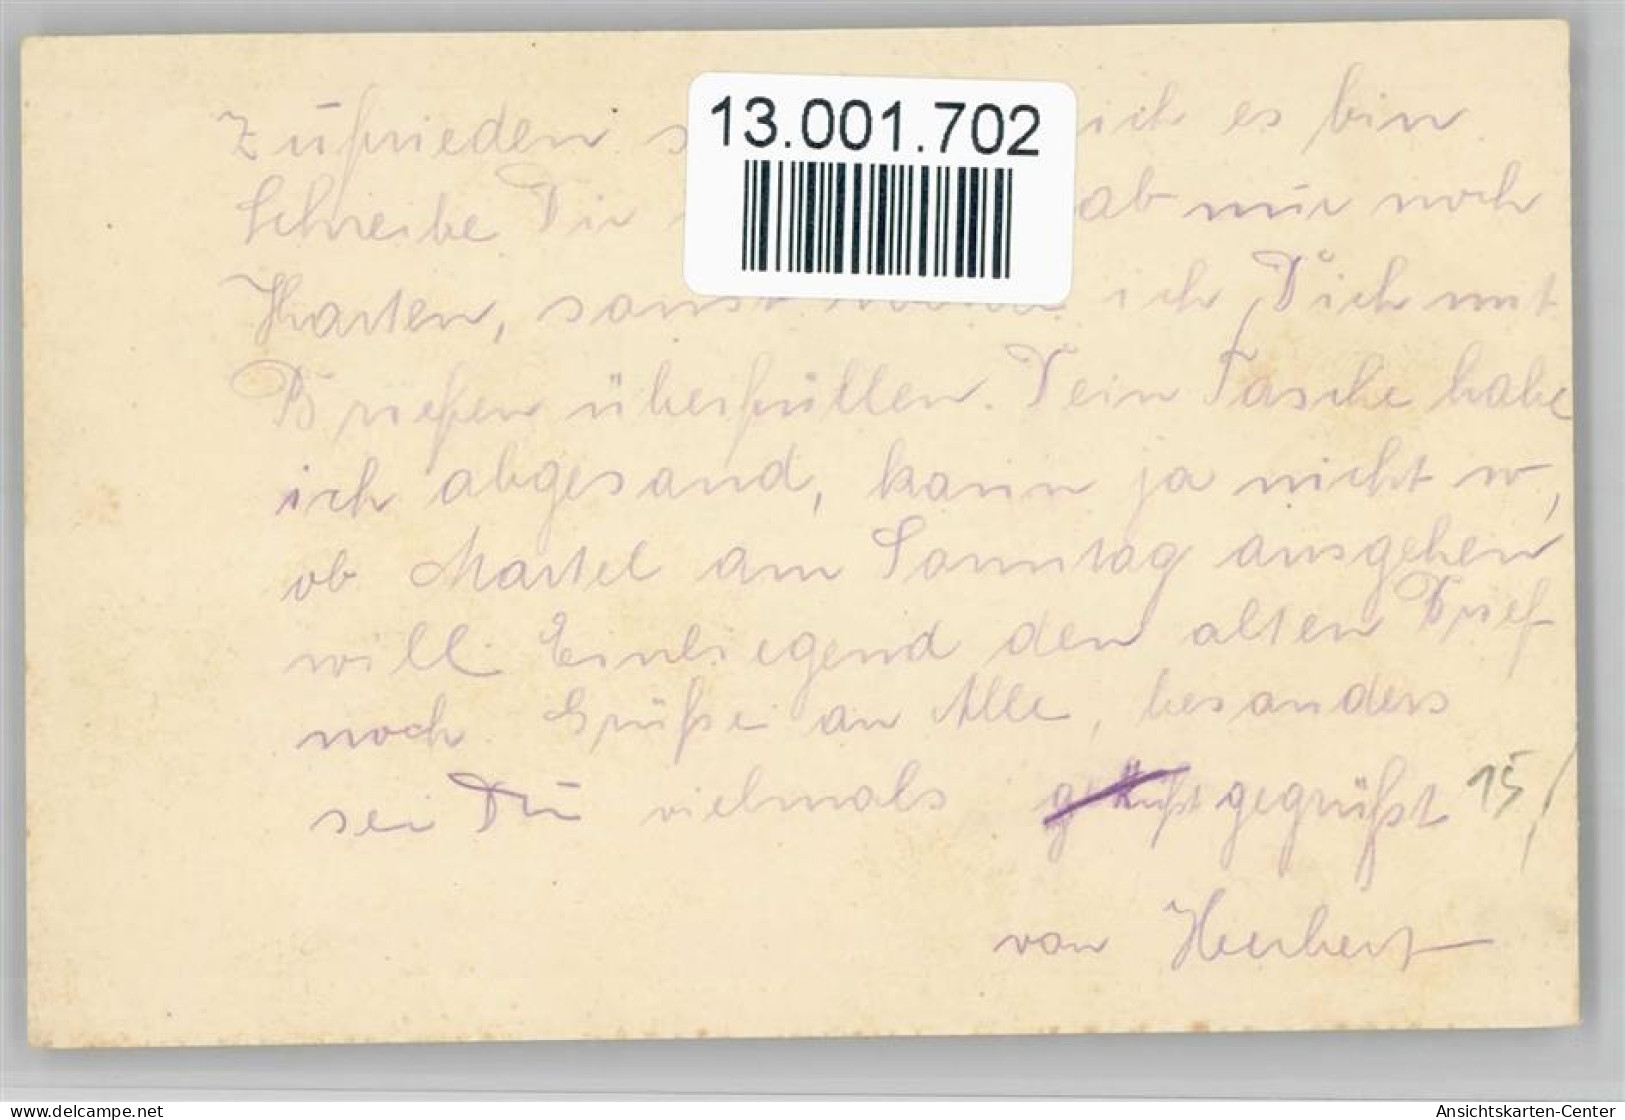 13.001.702
zufrieden ich es bin
Schreibe Dir ab nur noch
Karten, sonst ich Dich mit
Briefen überfüllen. Dein Tasche habe
ich abgesand, kann ja nicht w,
ob Martel am Sonntag ausgehen
will Einliegend den alten Brief
noch Grüße an Alle, besonders
sei Du vielmals gegrüßt 15/
von Herbert
delcampe.net
Ansichtskarten-Center